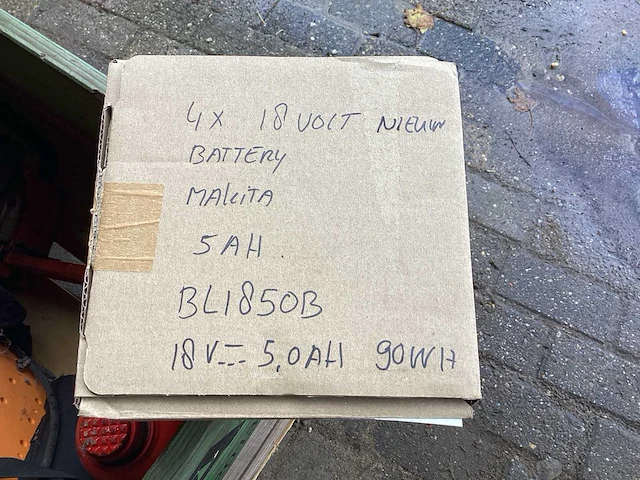 4X 18 VOLT NIEUW
BATTERY
MAKITA
5 AH
BL1850B
18 V⎓ 5,0AH 90WH